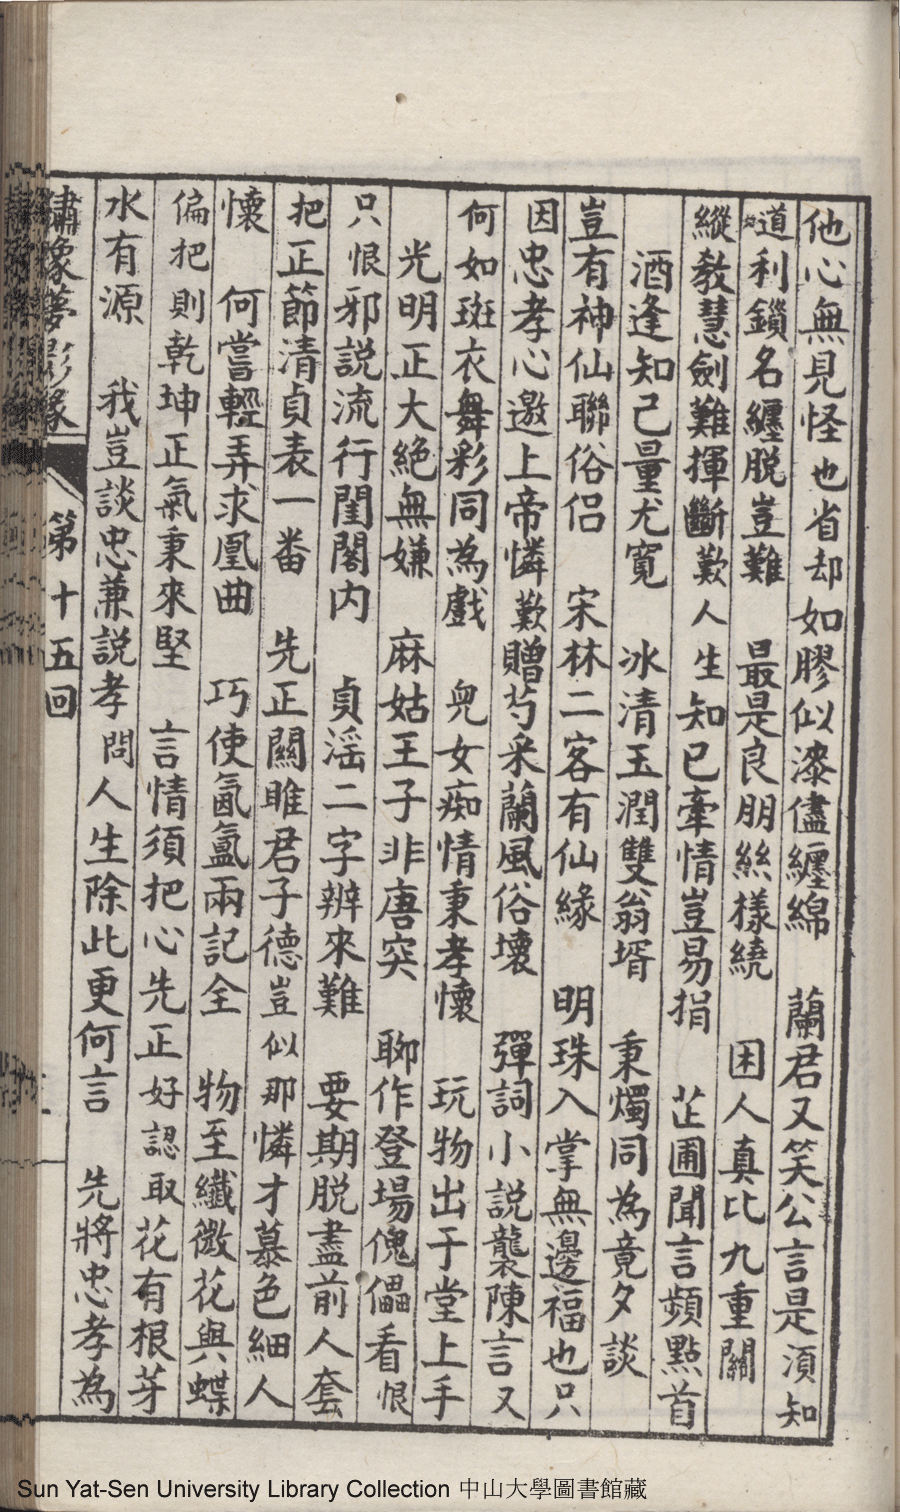 他心無見怪也省却如膠似漆儘纏綿　蘭君又笑公言是須知
道利鎖名纏脱豈難　最是良朋絲樣繞　困人真比九重關
縱教慧劍難揮斷歎人生知已牽情豈易捐　芷圃聞言頻點首
酒逢知己量尤寬　冰清玉潤雙翁壻　秉燭同為竟夕談
豈有神仙聯俗侣　宋林二客有仙緣　明珠入掌無邊福也只
因忠孝心邀上帝憐歎贈芍采蘭風俗壞　彈詞小説襲陳言又
何如斑衣舞彩同為戲　兒女痴情秉孝懷　玩物出于堂上手
光明正大絶無嫌　麻姑王子非唐突　聊作登場傀儡看恨
只恨邪説流行閨閣内　貞滛二字辨來難　要期脱盡前人套
把正節清貞表一番　先正關雎君子德豈似那憐才慕色細人
懷　何嘗輕弄求凰曲　巧使氤氳兩記全　物至纖微花與蝶
偏把則乾坤正氣秉來堅　言情須把心先正好認取花有根芽
水有源　我豈談忠兼説孝問人生除此更何言　先將忠孝為
繡像夢影緣　第十五回
Sun Yat-Sen University Library Collection 中山大學圖書館藏